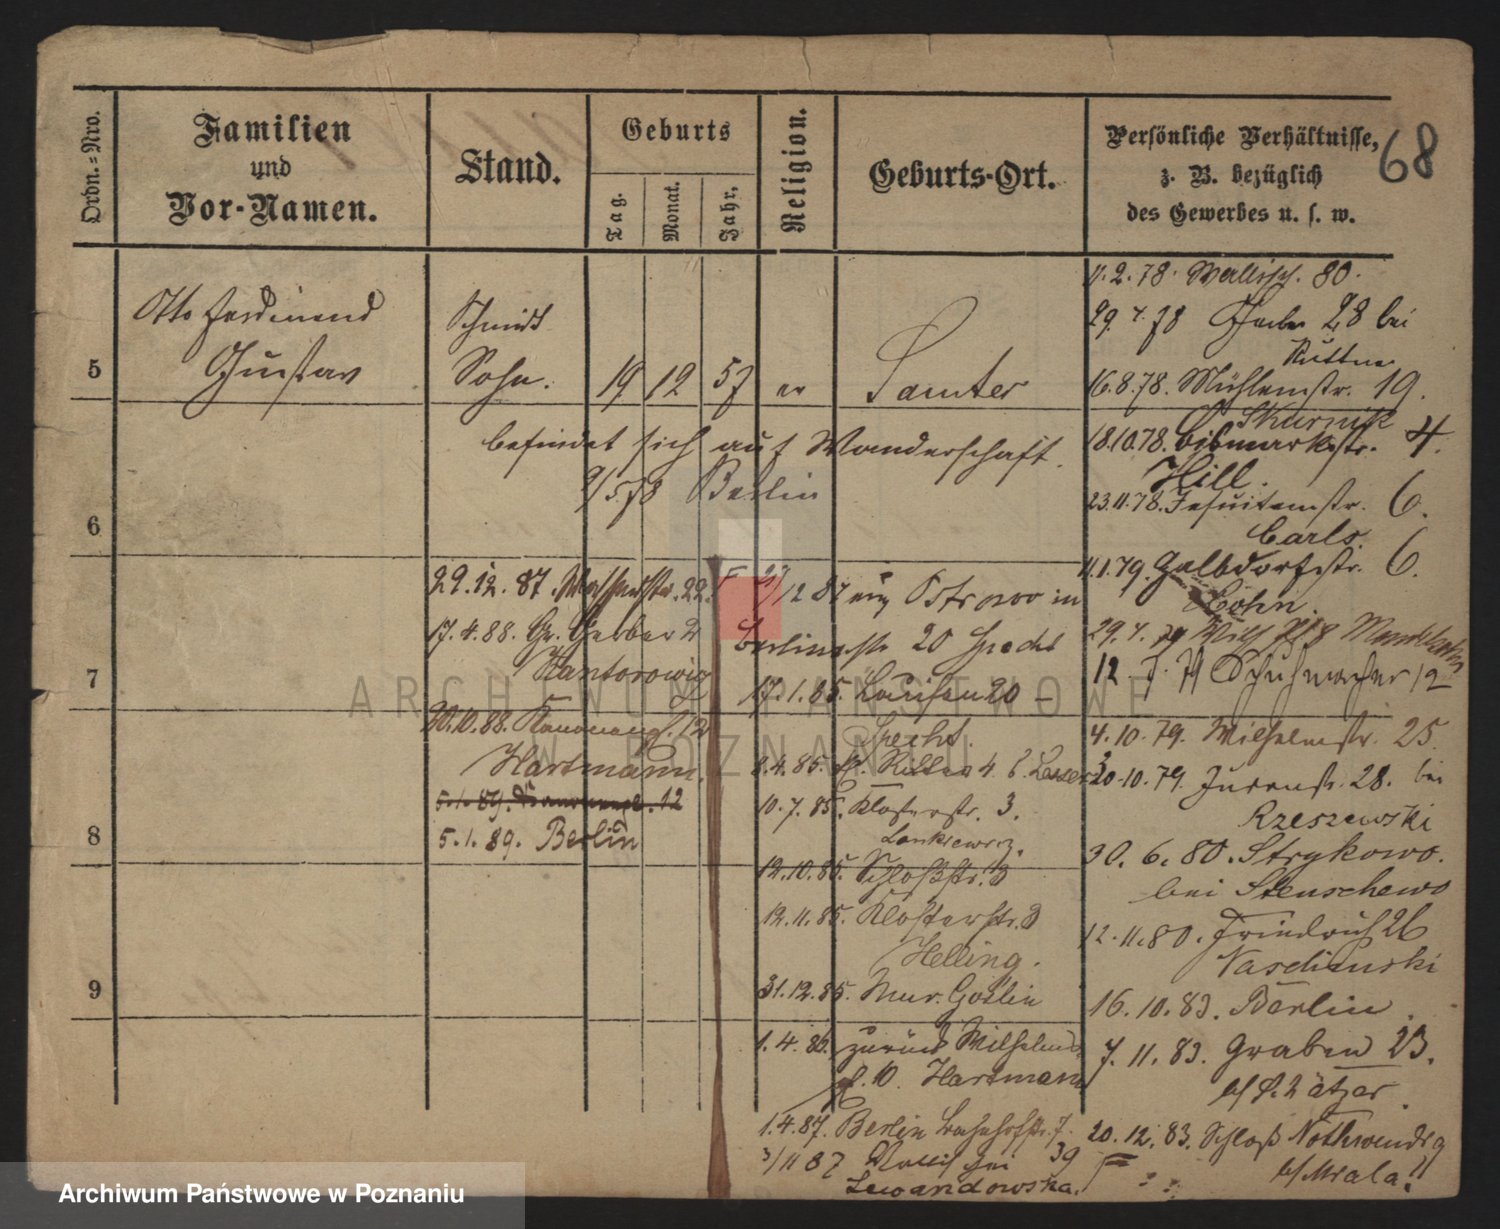 Ordn.=Nro.
Familien
und
Vor-Namen.
Stand.
Geburts
Tag.
Monat.
Jahr.
Religion.
Geburts-Ort.
Persönliche Verhältnisse,
z. B. bezüglich
des Gewerbes u. s. w.
68
5
Otto Ferdinand
Gustav
Schmidt
Sohn.
19 12 57 ev Samter
befindet sich auf Wanderschaft.
9/5 78 Berlin
6
7
8
9
29.12.87. 22.
17.4.88. Gr. Gerber
Kantorowicz
30.10.88. Kanonenpl. 12
Hartmann.
5.1.89. 12
5.1.89. Berlin
12 87 Ostrowo in
Berlinerstr 20 Specht
17.1.85. 20
Specht.
4.85. Kl. Ritter 4. b. Lesser
10.7.85. Klosterstr. 3.
Lankiewicz.
12.10.85. Schloßstr. 3
12.11.85. Klosterstr. 3
Helling.
31.12.85. Mur. Goslin
1.4.86. zurück Wilhelms
pl. 10. Hartmann
1.4.87. Berlin Bahnhofstr. 7.
3/11 87 39
Lewandowska.
11.2.78. Wallisch. 80.
29.4.78 28 bei
16.8.78. Mühlenstr. 19.
Skurnik
18.10.78. Bismarkstr. 4.
Hill.
23.11.78. Jesuitenstr. 6.
Carls.
11.1.79. Halbdorfstr. 6.
Höhn.
29.4.79 Wilh pl 8
12. 7. 79 Schuhmacher 12
4.10.79. Wilhelmstr. 25.
20.10.79. 28. bei
Rzeszewski
30.6.80. Strykowo.
bei Stenschewo
12.11.80. Friedrich 26
16.10.83. Berlin.
7.11.83. Graben 23.
b/
20.12.83. Schloß Nothwendig
b/ Mrala.
ARCHIWUM PAŃSTWOWE
W POZNANIU
Archiwum Państwowe w Poznaniu